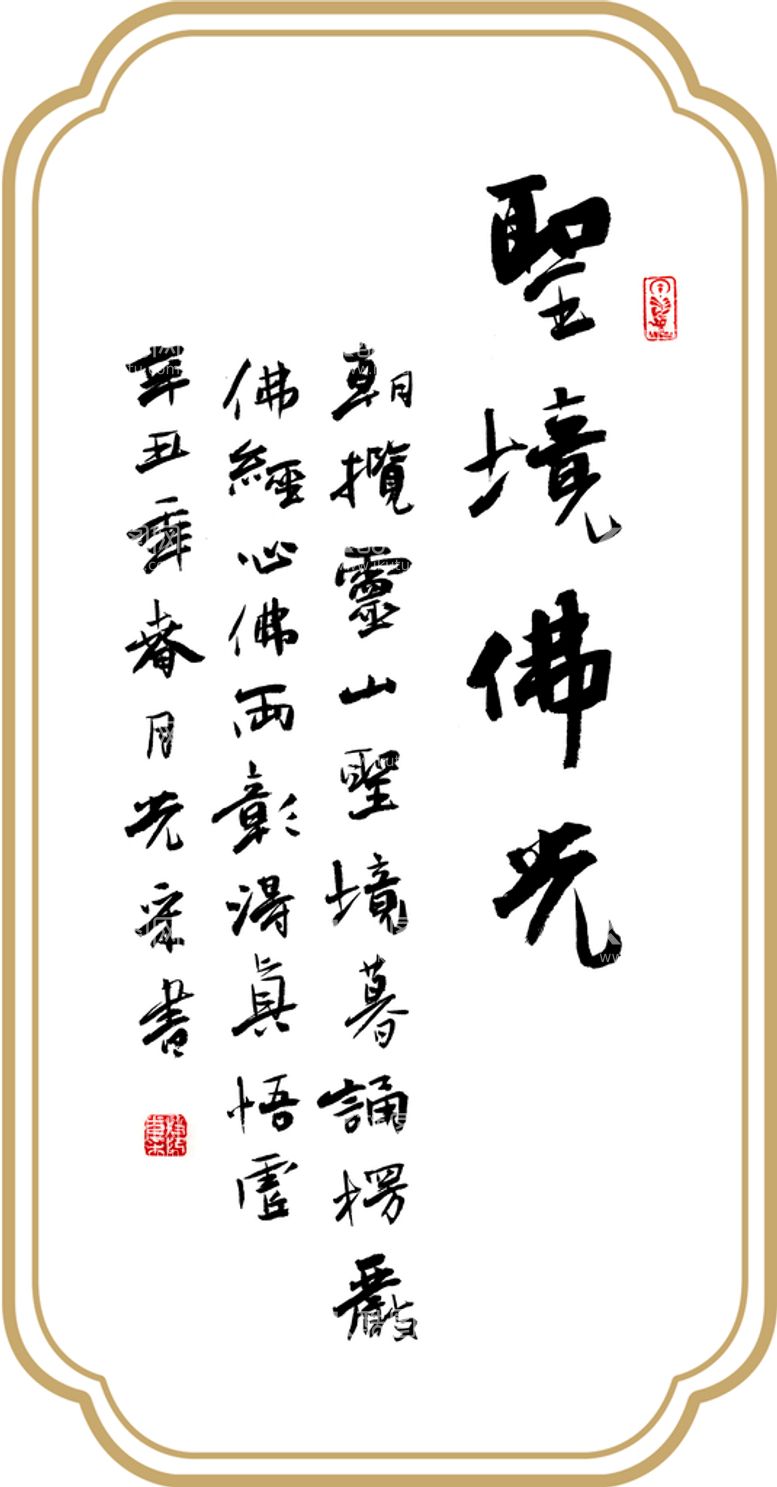 聖境佛光
朝攬靈山聖境暮誦楞嚴
佛經心佛兩彰得真悟虛
辛丑年春月光宗書